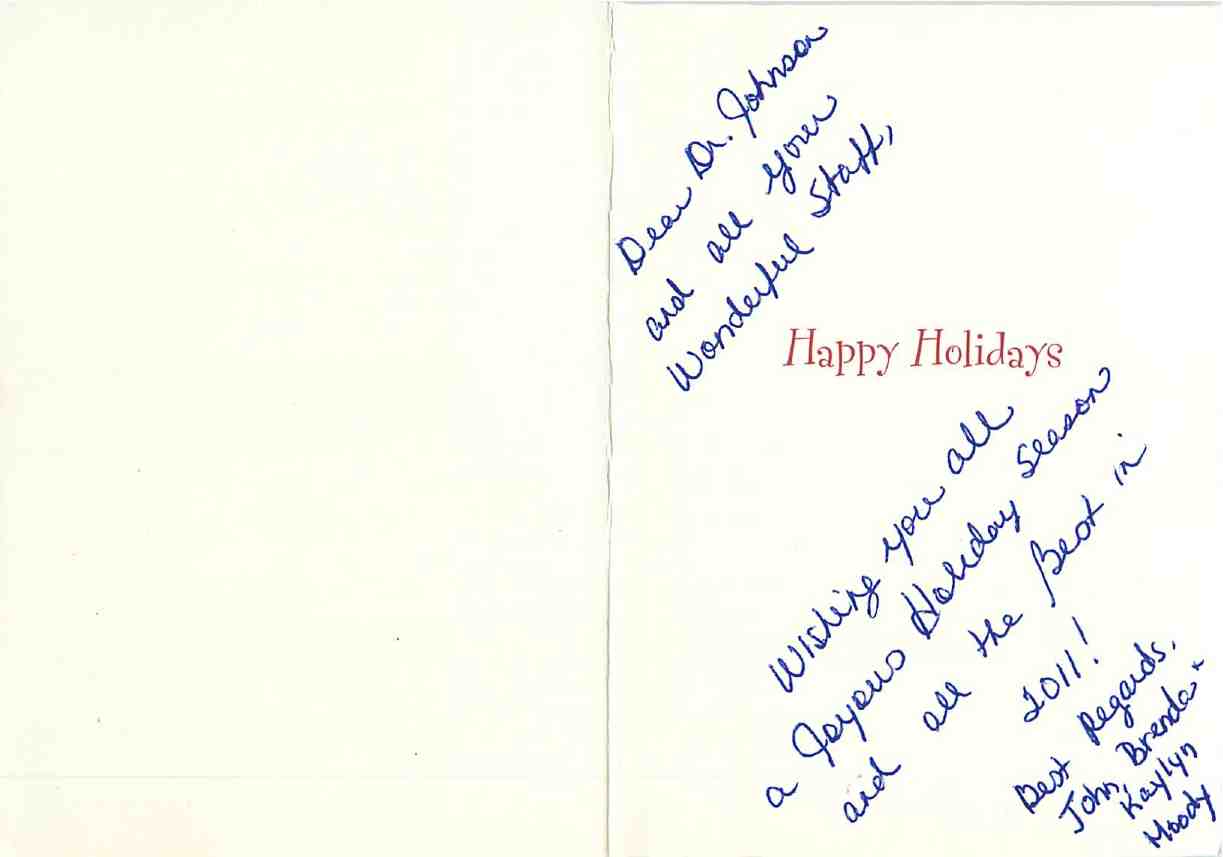 Dear Dr. Johnson
and all your
Wonderful Staff,
Happy Holidays
Wishing you all
a Joyous Holiday Season
and all the Best in
2011!
Best Regards,
John, Brenda +
Kaylyn
Moody